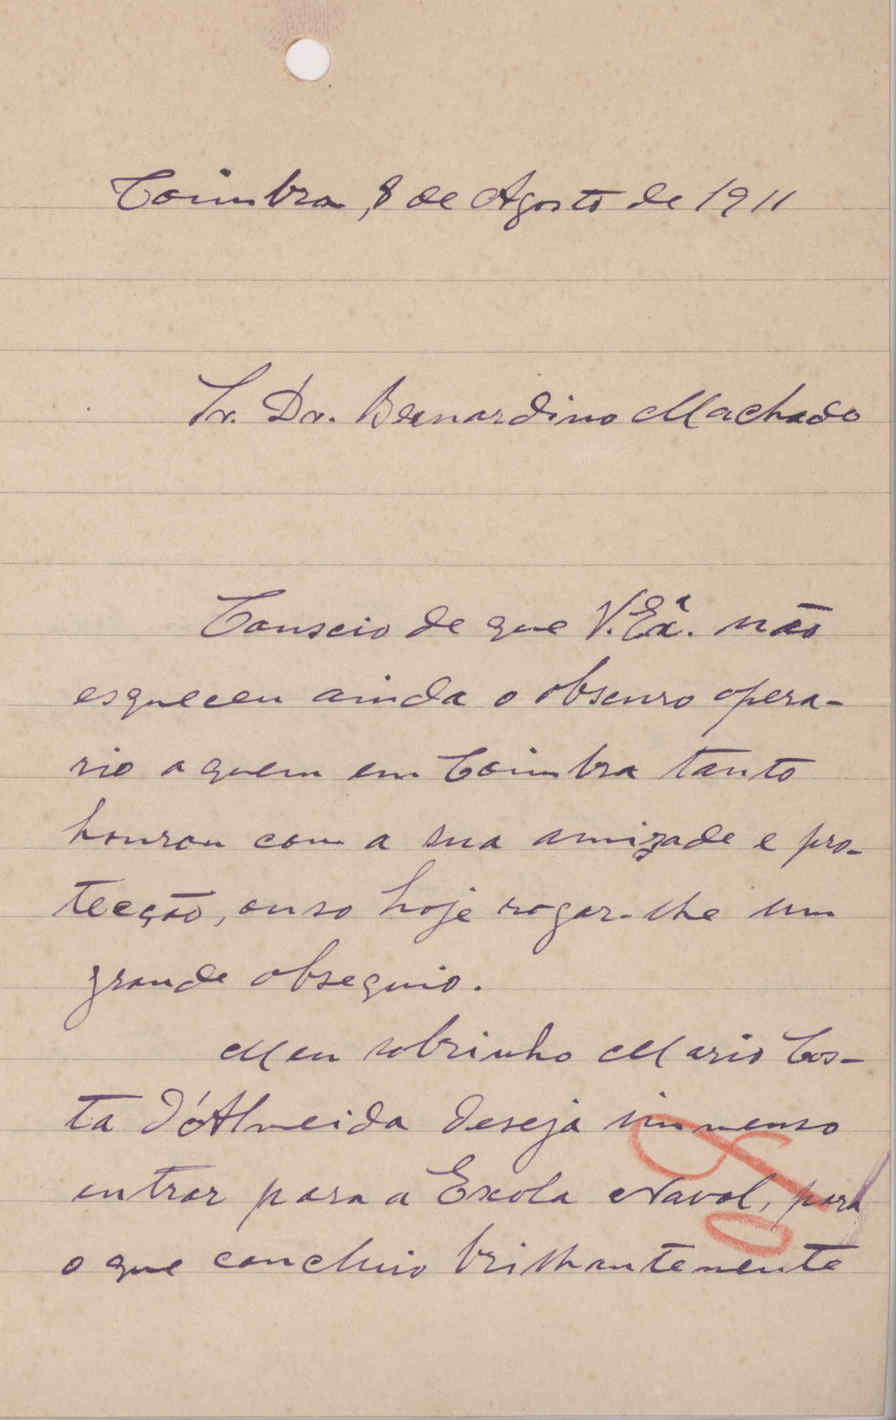 Coimbra, 8 de Agosto de 1911
Sr. Dr. Bernardino Machado
Conscio de que V. Exª. não
esqueceu ainda o obscuro opera-
rio a quem em Coimbra tanto
honrou com a sua amizade e pro-
tecção, ouso hoje rogar-lhe um
grande obsequio.
Meu sobrinho Mario Cos-
ta d'Almeida deseja immenso
entrar para a Escola Naval, para
o que concluio brilhantemente